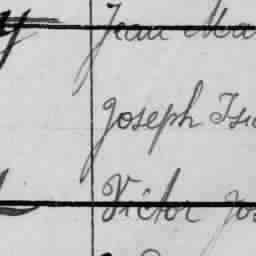 Jean Ma
Joseph Isi
Victor Jos